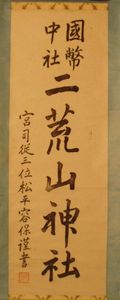 國幣中社
二荒山神社
宮司從三位松平容保謹書